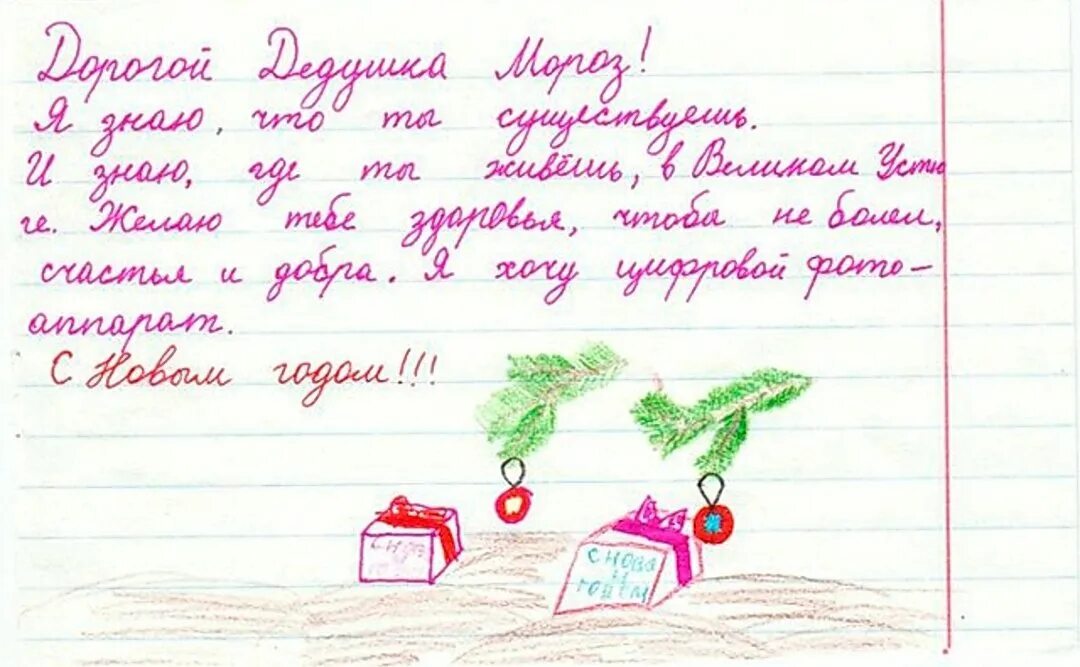 Дорогой Дедушка Мороз!
Я знаю, что ты существуешь.
И знаю, где ты живёшь, в Великом Устю
ге. Желаю тебе здоровья, чтобы не болел,
счастья и добра. Я хочу цифровой фото-
аппарат.
С Новым годом!!!
С НОВ
С НОВЫ
М
ГОДОМ